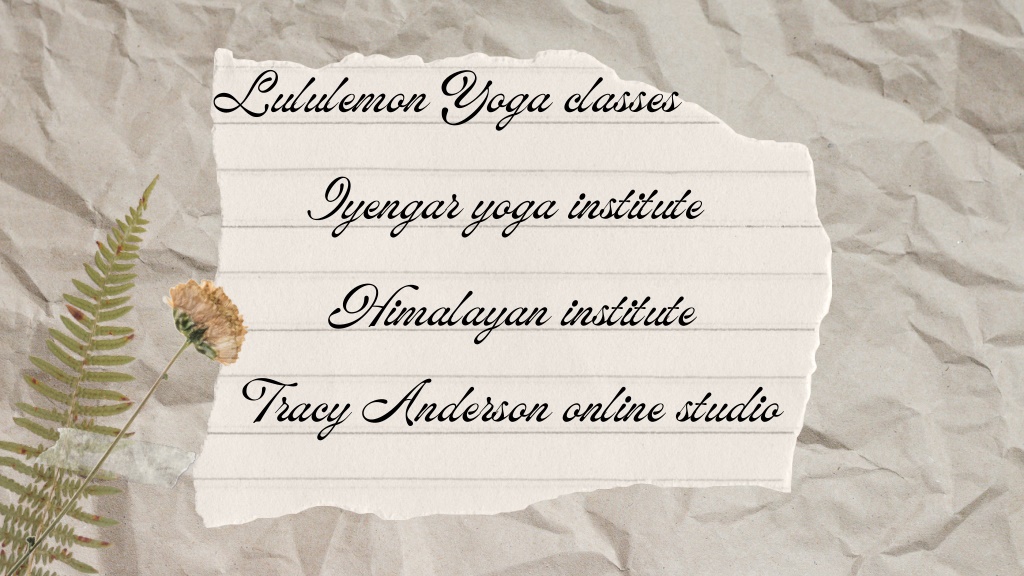 Lululemon Yoga classes
Iyengar yoga institute
Himalayan institute
Tracy Anderson online studio